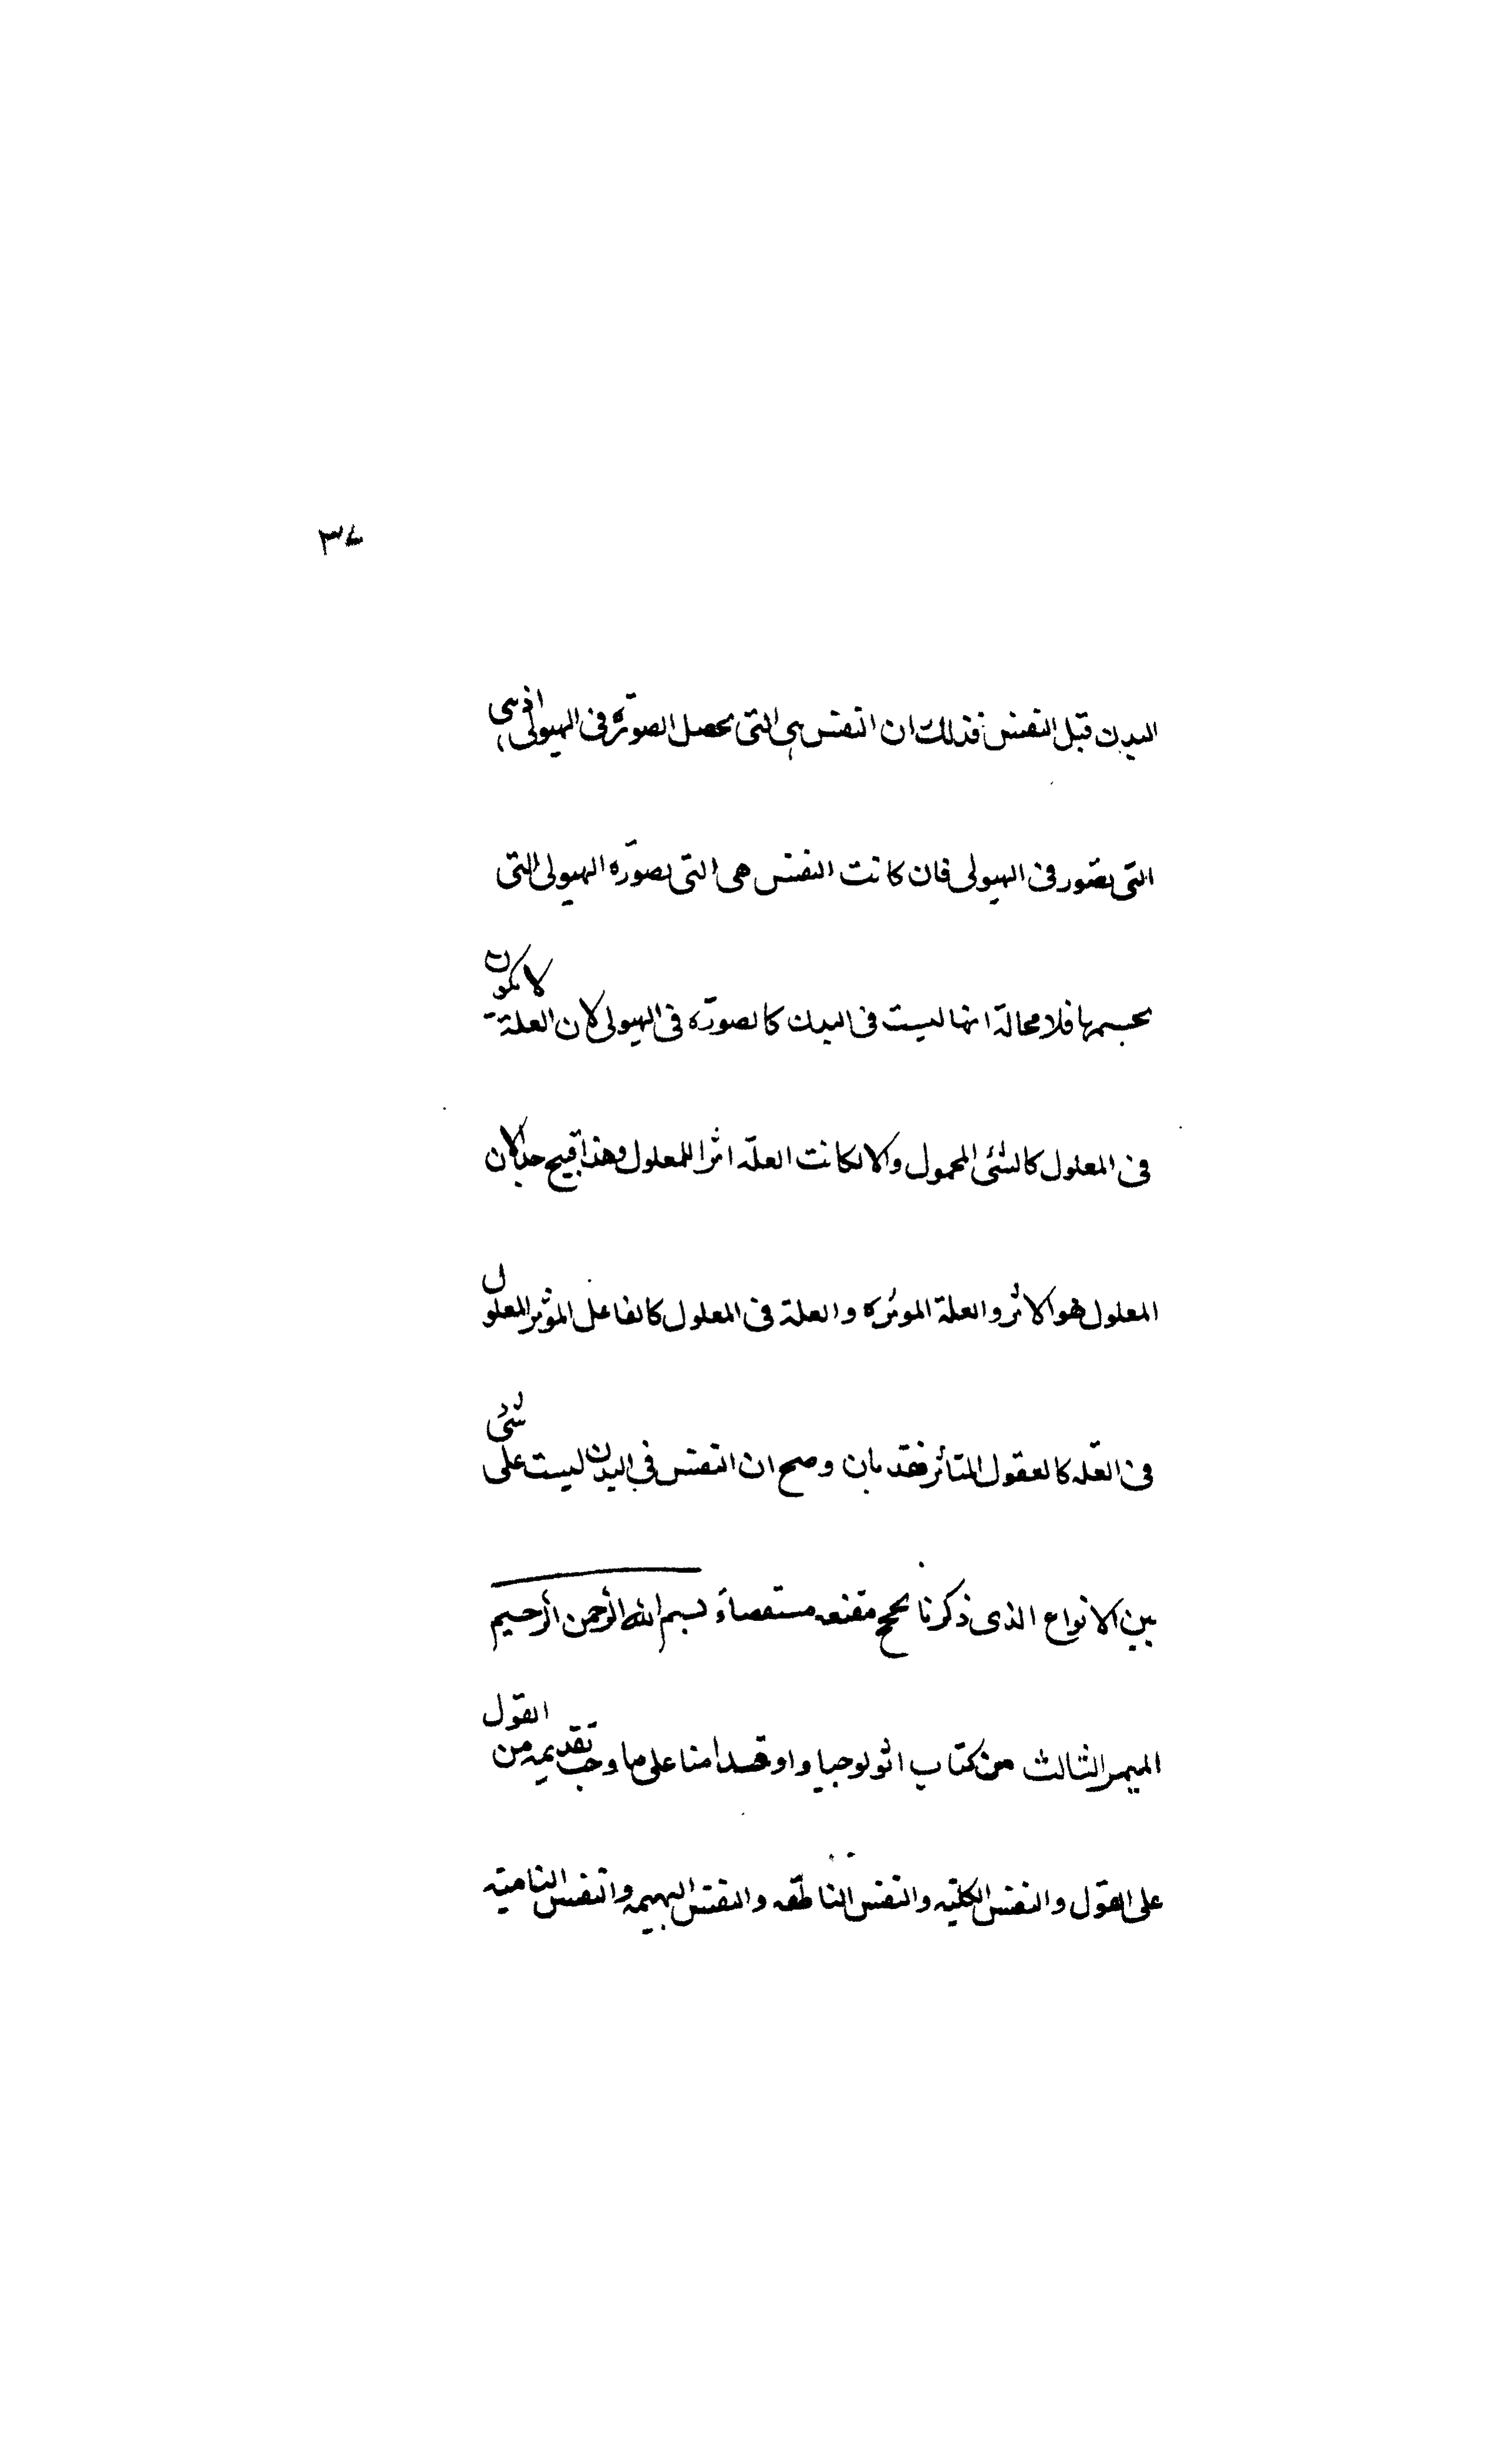 ٣٤
البدن قبل النفس فذلك ان النفس هى التى تحصل الصورة فى الهيولى اذ هى
التى تصور فى الهيولى فان كانت النفس هى التى تصوره الهيولى التى
تجسمها فلا محالة انها ليست فى البدن كالصورة فى الهيولى لان العلة لا تكون
فى المعلول كالشئ المحمول والا لكانت العلة اثرا للمعلول وهذا قبيح جدا لان
المعلول هو الاثر والعلة الموثرة والعلة فى المعلول كالفاعل الموثر والمعلول
فى العله كالمعقول المتأثر فقد بان وصح ان النفس فى البدن ليست على شئ
بين الانواع الذى ذكرنا بحجج مقنعه مستقصاة بسم الله الرحمن الرحيم
الميمر الثالث من كتاب اثولوجيا واذ قد امنا على ما وجب تقديمه من القول
على العقول والنفس الكلية والنفس الناطقه والنفس البهيمه والنفس النامية